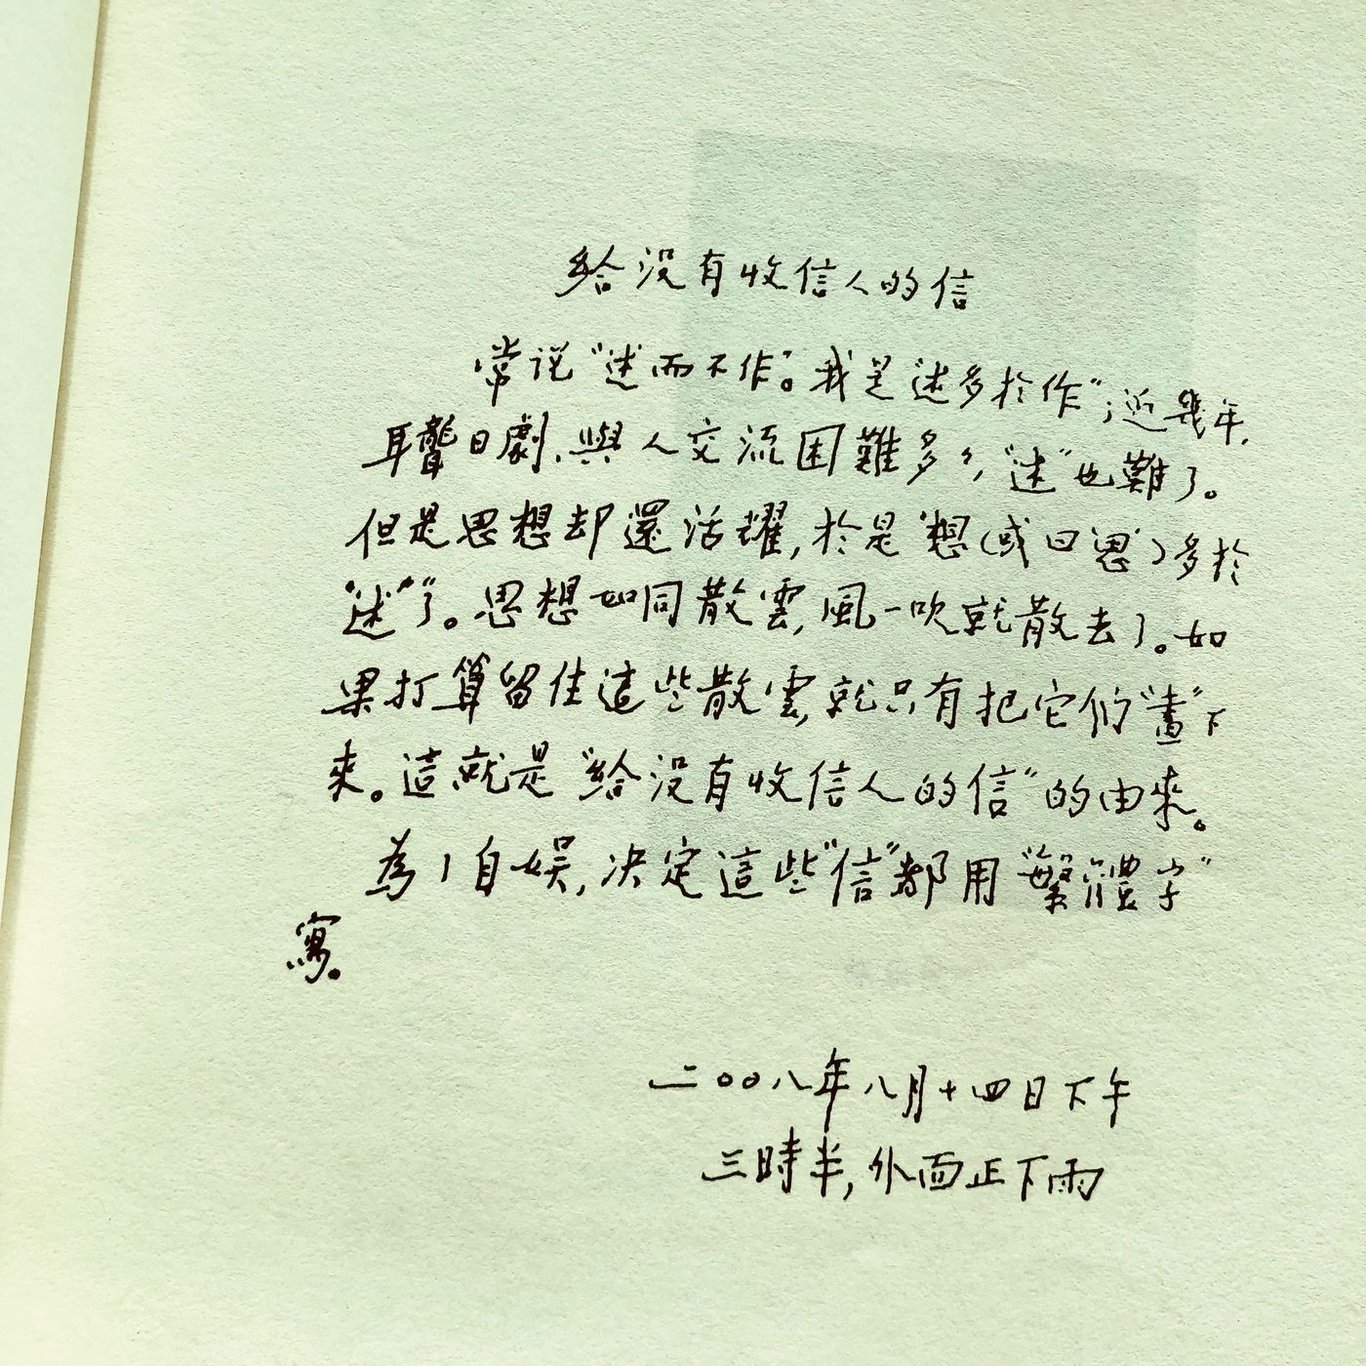 給没有收信人的信
常说“述而不作”。我是“述多於作”；近幾年，
耳聾日劇，與人交流困難多多，“述”也難了。
但是思想却還活耀，於是“想（或曰思）多於
“述”了。思想如同散雲，風一吹就散去了。如
果打算留住這些散雲，就只有把它們“畫”下
來。這就是“給没有收信人的信”的由來。
為了自娱，决定這些“信”都用“繁體字”
寫。
二〇〇八年八月十四日下午
三時半，外面正下雨